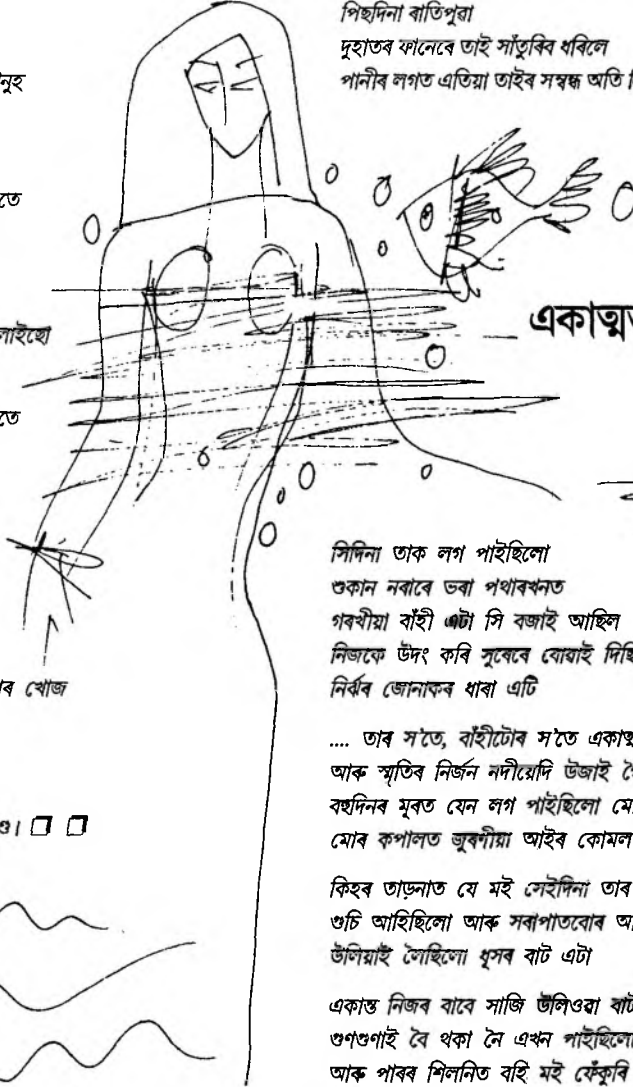 নুহ
তে
লাইছো
তে
ৰ খোজ
পিছদিনা ৰাতিপুৱা
দুহাতৰ ফানেৰে তাই সাঁতুৰিব ধৰিলে
পানীৰ লগত এতিয়া তাইৰ সম্বন্ধ অতি
একাত্ম
সিদিনা তাক লগ পাইছিলো
শুকান নৰাৰে ভৰা পথাৰখনত
গৰখীয়া বাঁহী এটা সি বজাই আছিল
নিজকে উদং কৰি সুৰেৰে বোৱাই দিছি
নিৰ্ঝৰ জোনাকৰ ধাৰা এটি
.... তাৰ স'তে, বাঁহীটোৰ স'তে একাত্ম
আৰু স্মৃতিৰ নিৰ্জন নদীয়েদি উজাই
বহুদিনৰ মূৰত যেন লগ পাইছিলো
মোৰ কপালত জুৰণীয়া আইৰ কোমল
কিহৰ তাড়নাত যে মই সেইদিনা তাৰ
গুচি আহিছিলো আৰু সৰাপাতবোৰ
উলিয়াই লৈছিলো ধূসৰ বাট এটা
একান্ত নিজৰ বাবে সাজি উলিওৱা বাট
গুণগুণাই বৈ থকা নৈ এখন পাইছিলো
আৰু পাৰৰ শিলনিত বহি মই ফেঁকুৰি